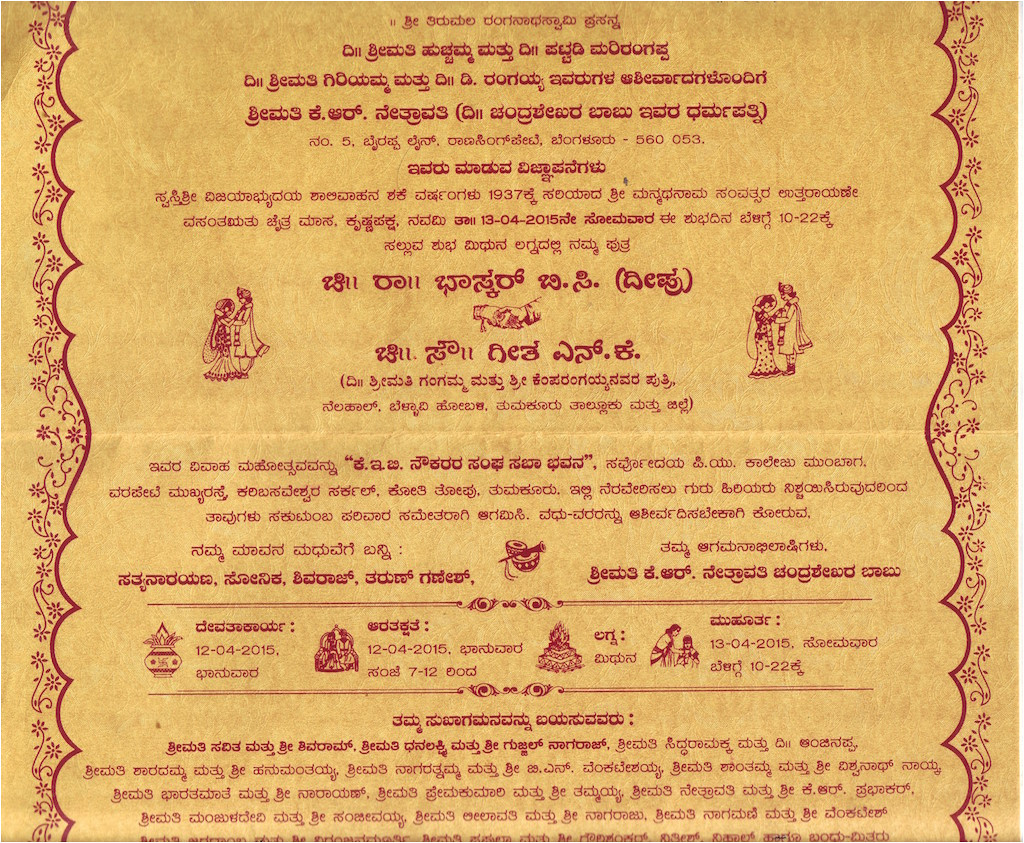 ॥ ಶ್ರೀ ತಿರುಮಲ ರಂಗನಾಥಸ್ವಾಮಿ ಪ್ರಸನ್ನ
ದಿ॥ ಶ್ರೀಮತಿ ಹುಚ್ಚಮ್ಮ ಮತ್ತು ದಿ॥ ಪಟ್ಟಡಿ ಮರಿರಂಗಪ್ಪ
ದಿ॥ ಶ್ರೀಮತಿ ಗಿರಿಯಮ್ಮ ಮತ್ತು ದಿ॥ ಡಿ. ರಂಗಯ್ಯ ಇವರುಗಳ ಆಶೀರ್ವಾದಗಳೊಂದಿಗೆ
ಶ್ರೀಮತಿ ಕೆ.ಆರ್. ನೇತ್ರಾವತಿ (ದಿ॥ ಚಂದ್ರಶೇಖರ ಬಾಬು ಇವರ ಧರ್ಮಪತ್ನಿ)
ನಂ. 5, ಬೈರಪ್ಪ ಲೈನ್, ರಾಣಸಿಂಗ್‌ಪೇಟೆ, ಬೆಂಗಳೂರು - 560 053.
ಇವರು ಮಾಡುವ ವಿಜ್ಞಾಪನೆಗಳು
ಸ್ವಸ್ತಿಶ್ರೀ ವಿಜಯಾಭ್ಯುದಯ ಶಾಲಿವಾಹನ ಶಕೆ ವರ್ಷಂಗಳು 1937ಕ್ಕೆ ಸರಿಯಾದ ಶ್ರೀ ಮನ್ಮಥನಾಮ ಸಂವತ್ಸರ ಉತ್ತರಾಯಣೇ
ವಸಂತಋತು ಚೈತ್ರ ಮಾಸ, ಕೃಷ್ಣಪಕ್ಷ, ನವಮಿ ತಾ॥ 13-04-2015ನೇ ಸೋಮವಾರ ಈ ಶುಭದಿನ ಬೆಳಿಗ್ಗೆ 10-22ಕ್ಕೆ
ಸಲ್ಲುವ ಶುಭ ಮಿಥುನ ಲಗ್ನದಲ್ಲಿ ನಮ್ಮ ಪುತ್ರ
ಚಿ॥ ರಾ॥ ಭಾಸ್ಕರ್ ಬಿ.ಸಿ. (ದೀಪು)
ಚಿ॥ ಸೌ॥ ಗೀತ ಎನ್.ಕೆ.
(ದಿ॥ ಶ್ರೀಮತಿ ಗಂಗಮ್ಮ ಮತ್ತು ಶ್ರೀ ಕೆಂಪರಂಗಯ್ಯನವರ ಪುತ್ರಿ,
ನೆಲಹಾಲ್, ಬೆಳ್ಳಾವಿ ಹೋಬಳಿ, ತುಮಕೂರು ತಾಲ್ಲೂಕು ಮತ್ತು ಜಿಲ್ಲೆ)
ಇವರ ವಿವಾಹ ಮಹೋತ್ಸವವನ್ನು “ಕೆ.ಇ.ಬಿ. ನೌಕರರ ಸಂಘ ಸಬಾ ಭವನ”, ಸರ್ವೋದಯ ಪಿ.ಯು. ಕಾಲೇಜು ಮುಂಬಾಗ,
ವರಪೇಟೆ ಮುಖ್ಯರಸ್ತೆ, ಕರಿಬಸವೇಶ್ವರ ಸರ್ಕಲ್, ಕೋತಿ ತೋಪು, ತುಮಕೂರು. ಇಲ್ಲಿ ನೆರವೇರಿಸಲು ಗುರು ಹಿರಿಯರು ನಿಶ್ಚಯಿಸಿರುವುದರಿಂದ
ತಾವುಗಳು ಸಕುಟುಂಬ ಪರಿವಾರ ಸಮೇತರಾಗಿ ಆಗಮಿಸಿ. ವಧು-ವರರನ್ನು ಆಶೀರ್ವದಿಸಬೇಕಾಗಿ ಕೋರುವ,
ನಮ್ಮ ಮಾವನ ಮಧುವೆಗೆ ಬನ್ನಿ :
ಸತ್ಯನಾರಾಯಣ, ಸೋನಿಕ, ಶಿವರಾಜ್, ತರುಣ್ ಗಣೇಶ್,
ತಮ್ಮ ಆಗಮನಾಭಿಲಾಷಿಗಳು,
ಶ್ರೀಮತಿ ಕೆ.ಆರ್. ನೇತ್ರಾವತಿ ಚಂದ್ರಶೇಖರ ಬಾಬು
ದೇವತಾಕಾರ್ಯ :
12-04-2015,
ಭಾನುವಾರ
ಆರತಕ್ಷತೆ :
12-04-2015, ಭಾನುವಾರ
ಸಂಜೆ 7-12 ರಿಂದ
ಲಗ್ನ :
ಮಿಥುನ
ಮುಹೂರ್ತ :
13-04-2015, ಸೋಮವಾರ
ಬೆಳಿಗ್ಗೆ 10-22ಕ್ಕೆ
ತಮ್ಮ ಸುಖಾಗಮನವನ್ನು ಬಯಸುವವರು :
ಶ್ರೀಮತಿ ಸವಿತ ಮತ್ತು ಶ್ರೀ ಶಿವರಾಮ್, ಶ್ರೀಮತಿ ಧನಲಕ್ಷ್ಮಿ ಮತ್ತು ಶ್ರೀ ಗುಜ್ಜಲ್ ನಾಗರಾಜ್, ಶ್ರೀಮತಿ ಸಿದ್ಧರಾಮಕ್ಕ ಮತ್ತು ದಿ॥ ಆಂಜಿನಪ್ಪ,
ಶ್ರೀಮತಿ ಶಾರದಮ್ಮ ಮತ್ತು ಶ್ರೀ ಹನುಮಂತಯ್ಯ, ಶ್ರೀಮತಿ ನಾಗರತ್ನಮ್ಮ ಮತ್ತು ಶ್ರೀ ಬಿ.ಎನ್. ವೆಂಕಟೇಶಯ್ಯ, ಶ್ರೀಮತಿ ಶಾಂತಮ್ಮ ಮತ್ತು ಶ್ರೀ ವಿಶ್ವನಾಥ್ ನಾಯ್ಕ,
ಶ್ರೀಮತಿ ಭಾರತಮಾತೆ ಮತ್ತು ಶ್ರೀ ನಾರಾಯಣ್, ಶ್ರೀಮತಿ ಪ್ರೇಮಕುಮಾರಿ ಮತ್ತು ಶ್ರೀ ತಮ್ಮಯ್ಯ, ಶ್ರೀಮತಿ ನೇತ್ರಾವತಿ ಮತ್ತು ಶ್ರೀ ಕೆ.ಆರ್. ಪ್ರಭಾಕರ್,
ಶ್ರೀಮತಿ ಮಂಜುಳದೇವಿ ಮತ್ತು ಶ್ರೀ ಸಂಜೀವಯ್ಯ, ಶ್ರೀಮತಿ ಲೀಲಾವತಿ ಮತ್ತು ಶ್ರೀ ನಾಗರಾಜು, ಶ್ರೀಮತಿ ನಾಗಮಣಿ ಮತ್ತು ಶ್ರೀ ವೆಂಕಟೇಶ್